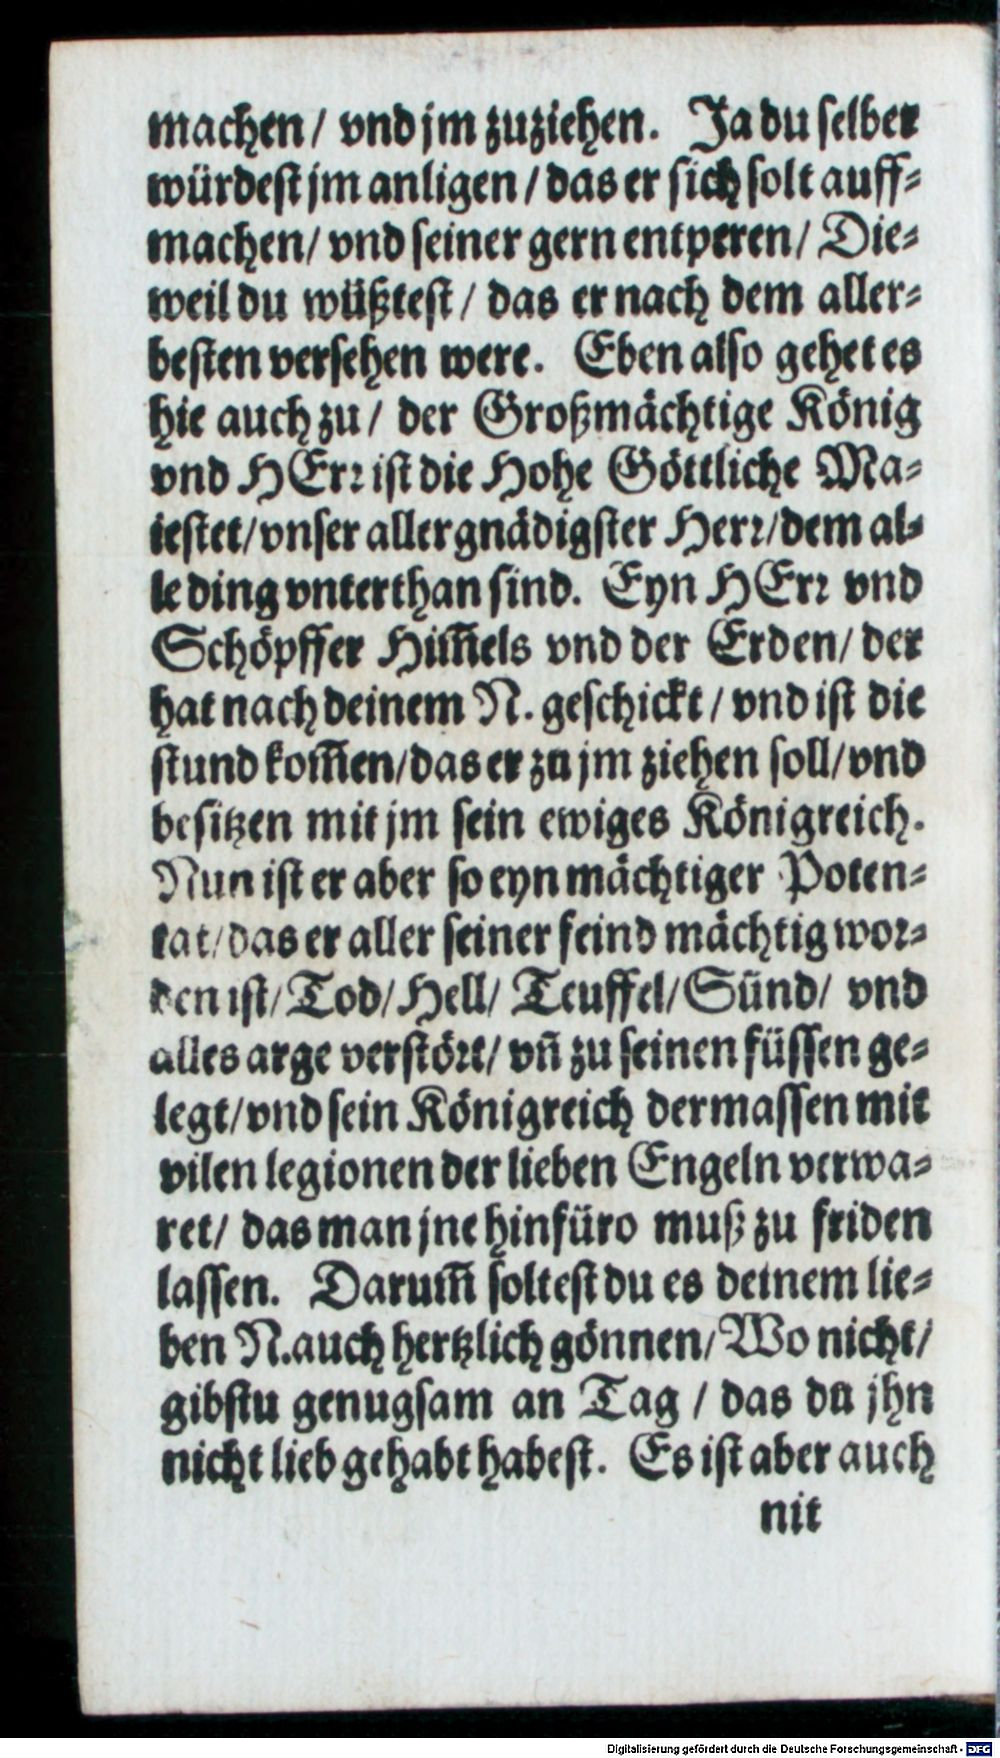 machen/ vnd jm zuziehen. Ja du selber
würdest jm anligen/ das er sich solt auff-
machen/ vnd seiner gern entperen/ Die-
weil du wüßtest/ das er nach dem aller-
besten versehen were. Eben also gehet es
hie auch zu/ der Großmächtige König
vnd HErr ist die Hohe Göttliche Ma-
iestet/ vnser allergnädigster Herr/ dem al-
le ding vnterthan sind. Eyn HErr vnd
Schöpffer Him̄els vnd der Erden/ der
hat nach deinem N. geschickt/ vnd ist die
stund kom̄en/ das er zu jm ziehen soll/ vnd
besitzen mit jm sein ewiges Königreich.
Nun ist er aber so eyn mächtiger Poten-
tat/ das er aller seiner feind mächtig wor-
den ist/ Tod/ Hell/ Teuffel/ Sünd/ vnd
alles arge verstört/ vn̄ zu seinen füssen ge-
legt/ vnd sein Königreich dermassen mit
vilen legionen der lieben Engeln verwa-
ret/ das man jne hinfüro muß zu friden
lassen. Darum̄ soltest du es deinem lie-
ben N. auch hertzlich gönnen/ Wo nicht/
gibstu genugsam an Tag/ das du jhn
nicht lieb gehabt habest. Es ist aber auch
nit
Digitalisierung gefördert durch die Deutsche Forschungsgemeinschaft - DFG